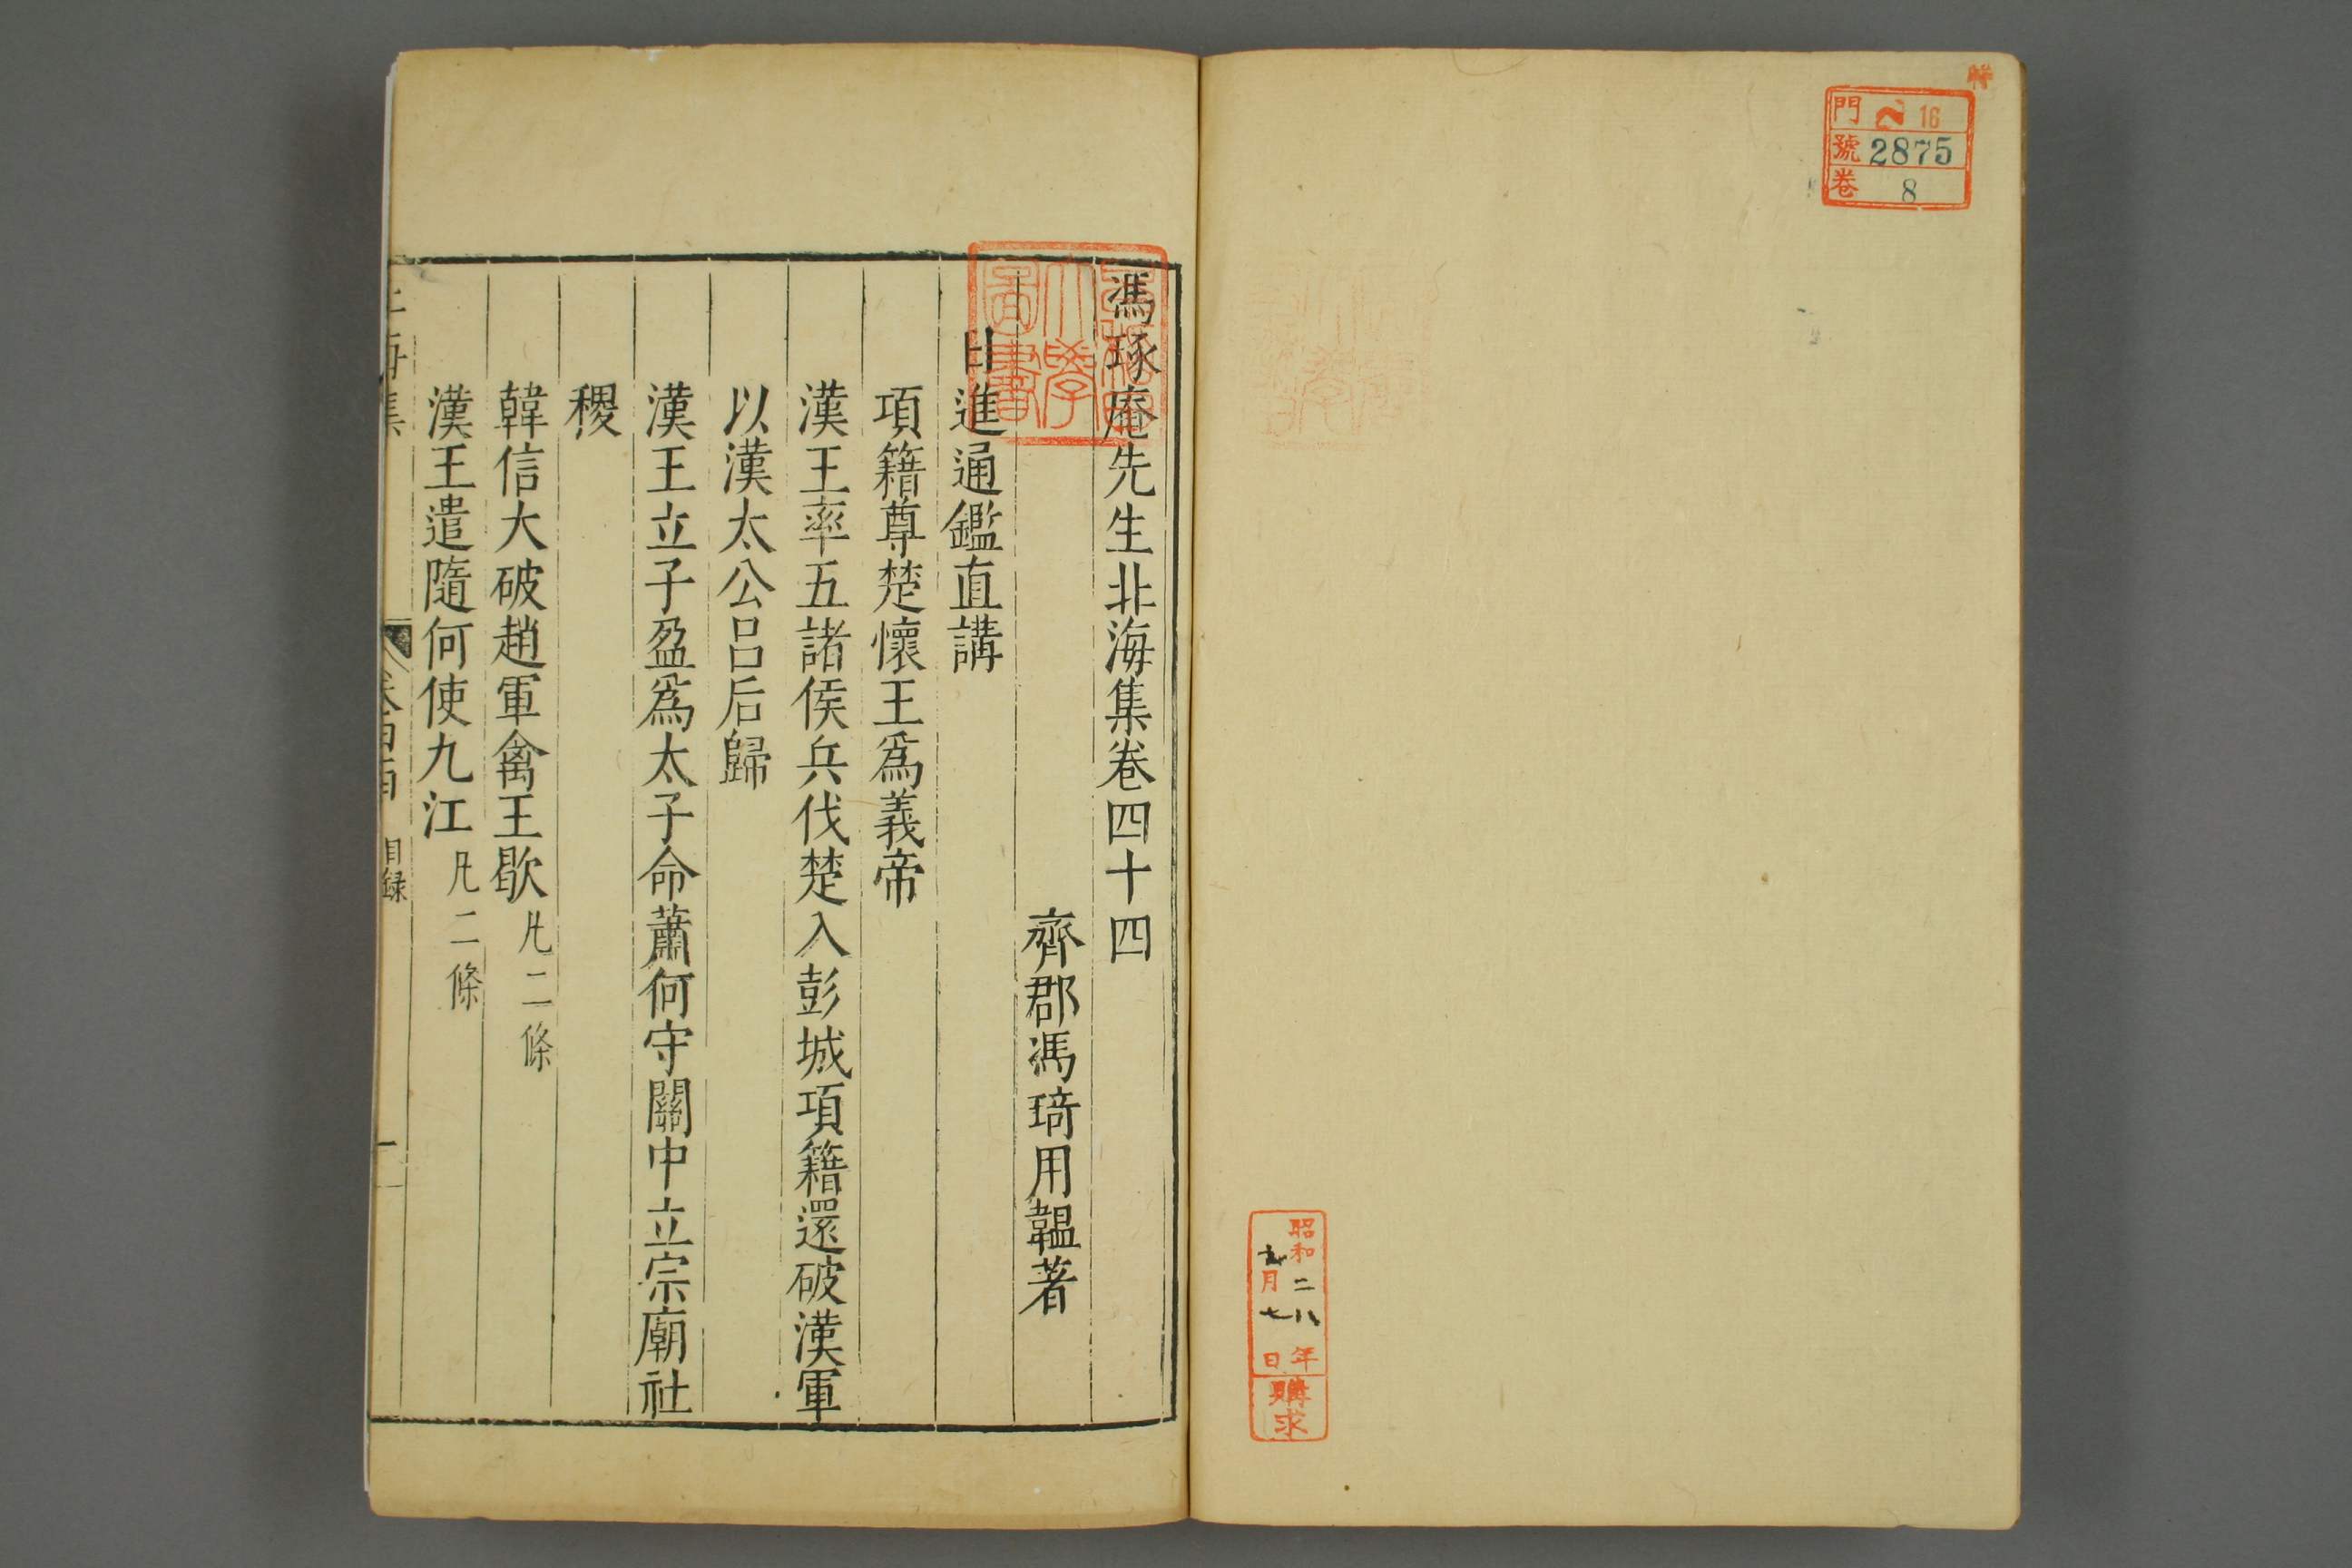 特
門 16
號 2875
卷 8
昭和二八年
月七日
購求
馮琢庵先生北海集卷四十四
齊郡馮琦用韞著
日進通鑑直講
項籍尊楚懷王爲義帝
漢王率五諸侯兵伐楚入彭城項籍還破漢軍
以漢太公呂后歸
漢王立子盈爲太子命蕭何守關中立宗廟社
稷
韓信大破趙軍禽王歇凡二條
漢王遣隨何使九江凡二條
目録
一